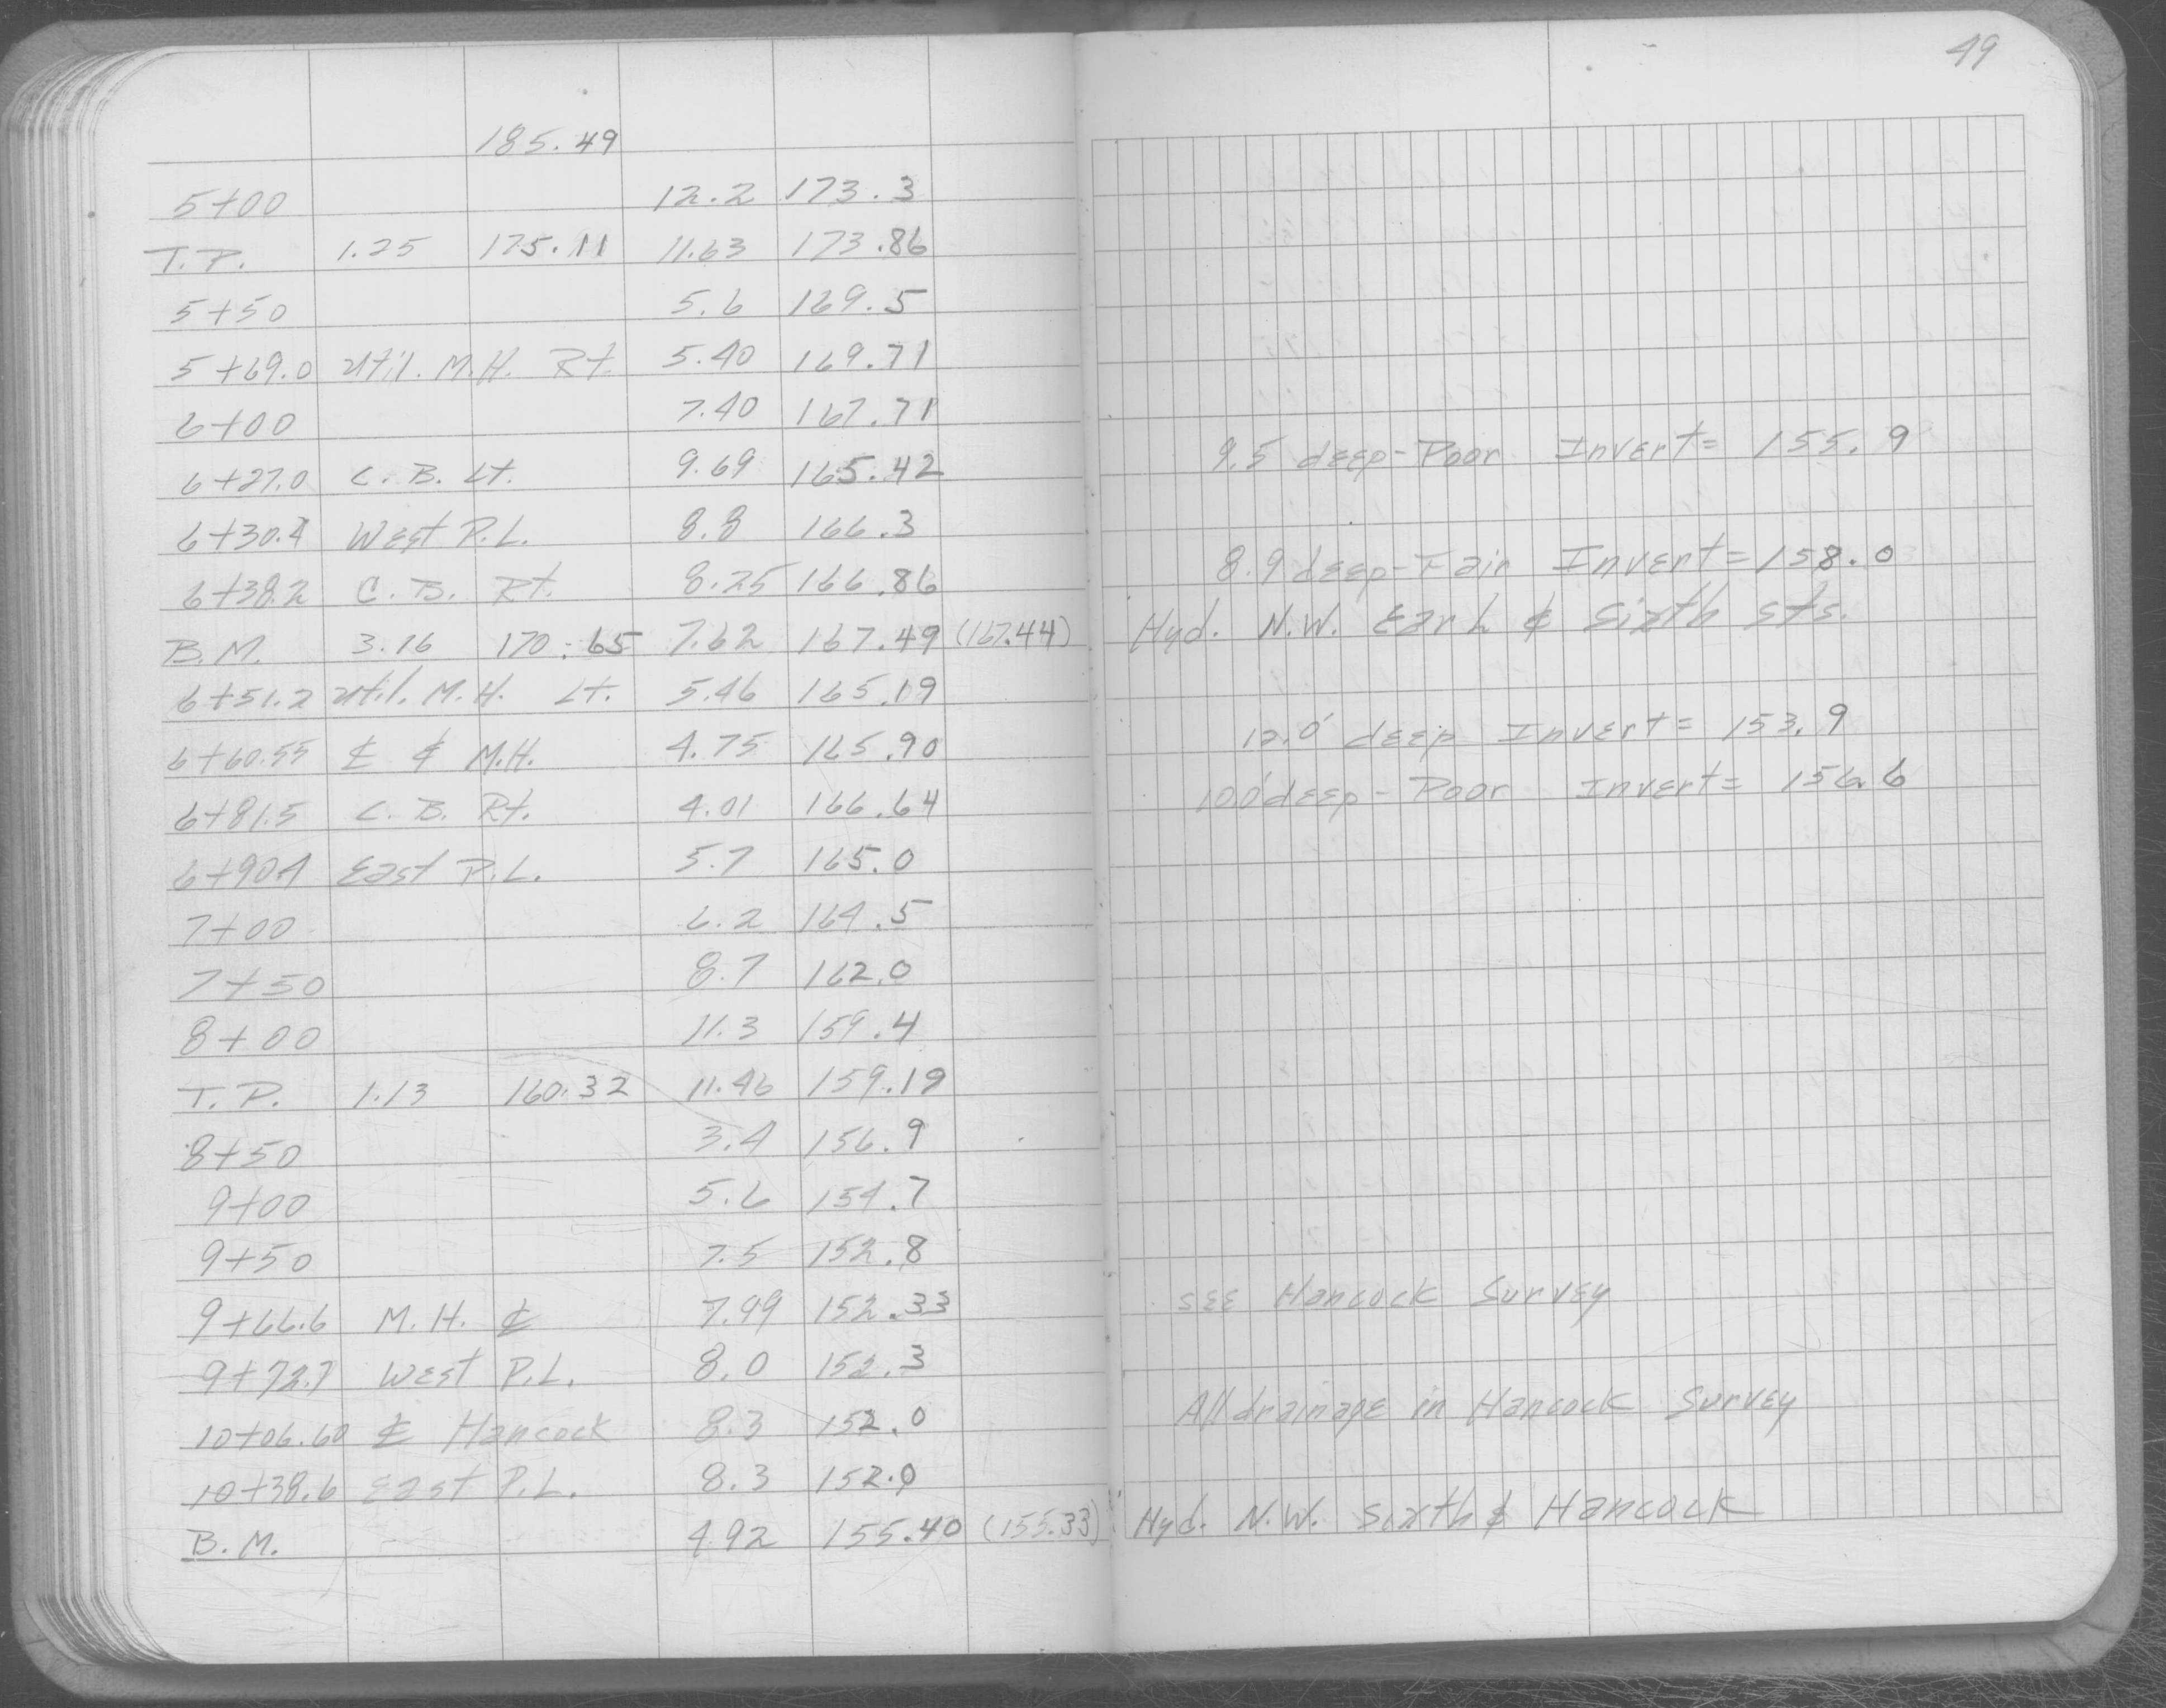 49
185.49
5+00 12.2 173.3
T.P. 1.25 175.11 11.63 173.86
5+50 5.6 169.5
5+69.0 Util. M.H. Rt. 5.40 169.71
6+00 7.40 167.71
6+27.0 C.B. Lt. 9.69 165.42 9.5 deep-Poor Invert= 155.9
6+30.4 West P.L. 8.8 166.3
6+38.2 C.B. Rt. 8.25 166.86 8.9 deep-Fair Invert=158.0
B.M. 3.16 170.65 7.62 167.49 (167.44) Hyd. N.W. Earl & Sixth Sts.
6+51.2 Util. M.H. Lt. 5.46 165.19
6+60.55 ℄ & M.H. 4.75 165.90 12.0' deep Invert= 153.9
6+81.5 C.B. Rt. 4.01 166.64 10.0' deep-Poor Invert= 156.6
6+90.4 East P.L. 5.7 165.0
7+00 6.2 164.5
7+50 8.7 162.0
8+00 11.3 159.4
T.P. 1.13 160.32 11.46 159.19
8+50 3.4 156.9
9+00 5.6 154.7
9+50 7.5 152.8
9+66.6 M.H. ℄ 7.99 152.33 See Hancock Survey
9+72.7 West P.L. 8.0 152.3
10+06.60 ℄ Hancock 8.3 152.0 All drainage in Hancock Survey
10+38.6 East P.L. 8.3 152.0
B.M. 4.92 155.40 (155.33) Hyd. N.W. Sixth & Hancock